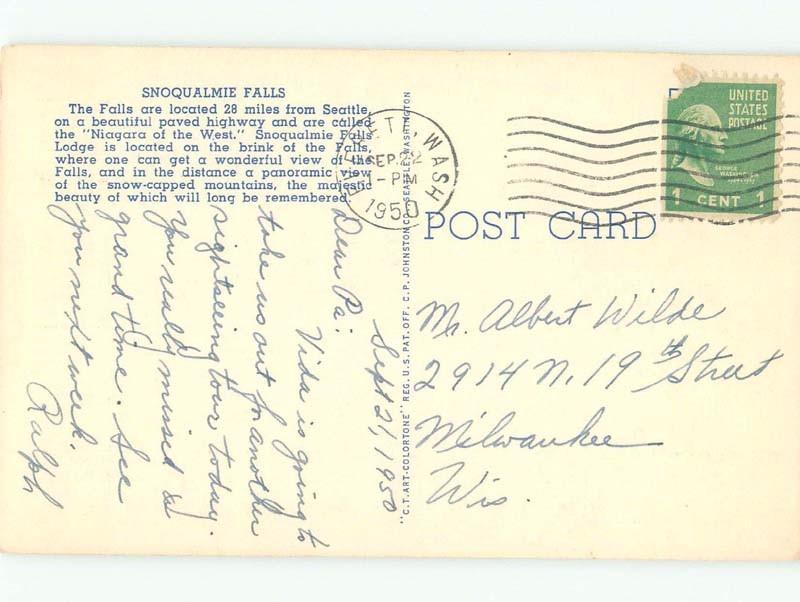 SNOQUALMIE FALLS
The Falls are located 28 miles from Seattle,
on a beautiful paved highway and are called
the "Niagara of the West." Snoqualmie Falls
Lodge is located on the brink of the Falls,
where one can get a wonderful view of the
Falls, and in the distance a panoramic view
of the snow-capped mountains, the majestic
beauty of which will long be remembered.
Sept 21, 1950
Dear Pa:
Vida is going to
take us out for another
sightseeing tour today.
You really missed a
grand time. See
you next week.
Ralph
"C.T. ART-COLORTONE" REG. U.S. PAT. OFF. C. P. JOHNSTON CO., SEATTLE, WASHINGTON
EVERETT, WASH
SEP 22
-PM
1950
UNITED
STATES
POSTAGE
GEORGE
WASHINGTON
1 CENT 1
POST CARD
Mr. Albert Wilde
2914 N. 19th Street
Milwaukee
Wis.